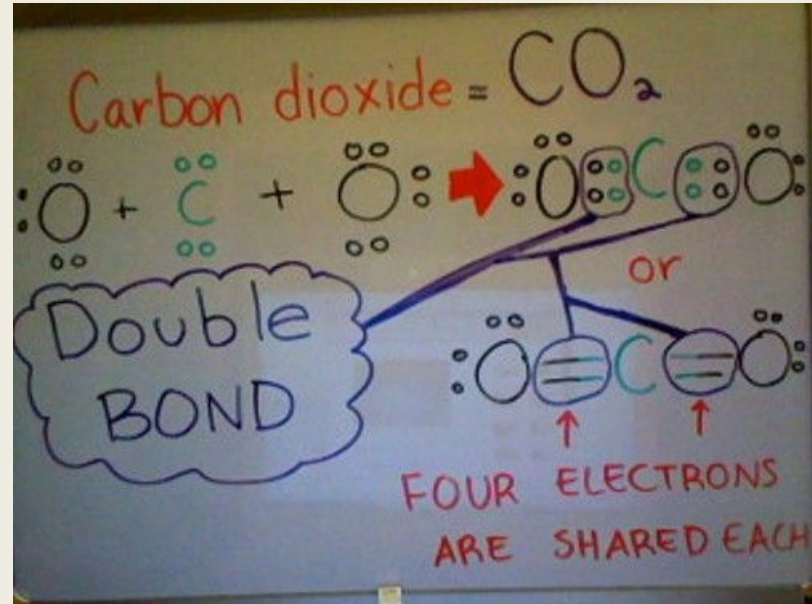 Carbon dioxide = CO₂
O + C + O O C O
or
Double
BOND
O = C = O
FOUR ELECTRONS
ARE SHARED EACH